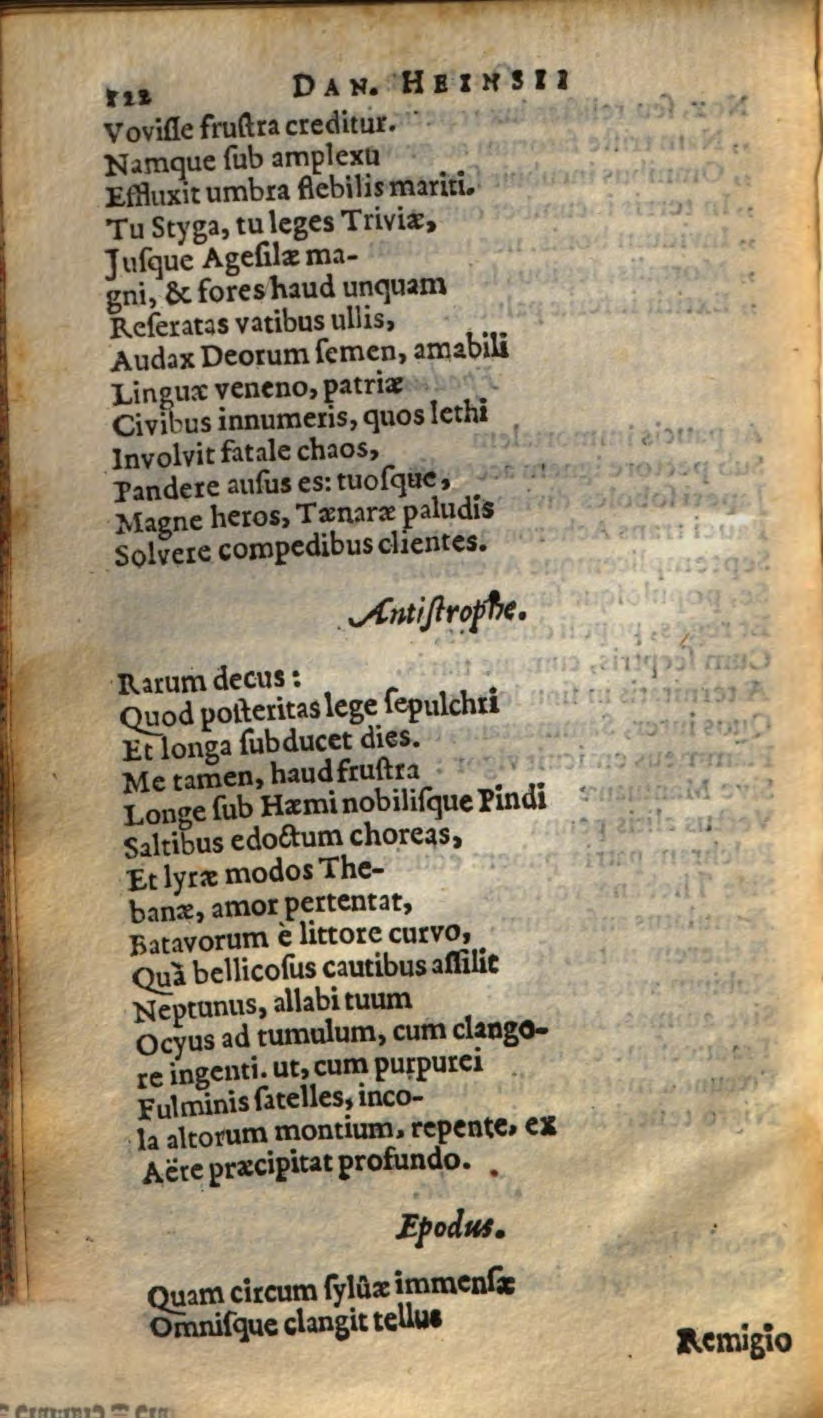 122 DAN. HEINSII
Voviſſe fruſtra creditur.
Namque ſub amplexu
Effluxit umbra flebilis mariti.
Tu Styga, tu leges Triviæ,
Juſque Ageſilæ ma-
gni, & fores haud unquam
Reſeratas vatibus ullis,
Audax Deorum ſemen, amabili
Linguæ veneno, patriæ
Civibus innumeris, quos lethi
Involvit fatale chaos,
Pandere auſus es: tuoſque,
Magne heros, Tænaræ paludis
Solvere compedibus clientes.
Antiſtrophe.
Rarum decus:
Quod poſteritas lege ſepulchri
Et longa ſubducet dies.
Me tamen, haud fruſtra
Longe ſub Hæmi nobiliſque Pindi
Saltibus edoctum choreas,
Et lyræ modos The-
banæ, amor pertentat,
Batavorum è littore curvo,
Quà bellicoſus cautibus aſſilit
Neptunus, allabi tuum
Ocyus ad tumulum, cum clango-
re ingenti. ut, cum purpurei
Fulminis ſatelles, inco-
la altorum montium, repente, ex
Aëre præcipitat profundo.
Epodus.
Quam circum ſylûæ immenſæ
Omniſque clangit tellus
Remigio